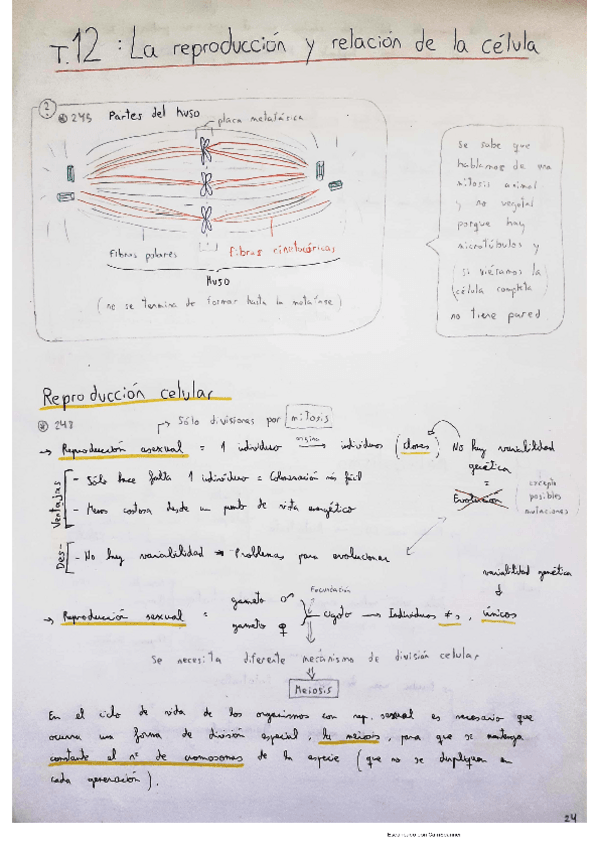 T.12 : La reproducción y relación de la célula
2
245 Partes del huso
placa metafásica
fibras polares
fibras cinetocóricas
Huso
(no se termina de formar hasta la metafase)
Se sabe que
hablamos de una
mitosis animal
y no vegetal
porque hay
microtúbulos y
(si viéramos la
célula completa)
no tiene pared
Reproducción celular
248
Sólo divisiones por mitosis
→ Reproducción asexual = 1 individuo origina → individuos (clones)
No hay variabilidad
genética
=
Evolución
(excepto
posibles
mutaciones)
Ventajas
- Sólo hace falta 1 individuo = Colonización más fácil
- Menos costosa desde un punto de vista energético
Des-
- No hay variabilidad → Problemas para evolucionar
variabilidad genética
→ Reproducción sexual = gameto ♂
gameto ♀
Fecundación
cigoto → Individuos ≠s, únicos
Se necesita diferente mecanismo de división celular
Meiosis
En el ciclo de vida de los organismos con rep. sexual es necesario que
ocurra una forma de división especial, la meiosis, para que se mantenga
constante el nº de cromosomas de la especie (que no se dupliquen en
cada generación).
24
Escaneado con CamScanner